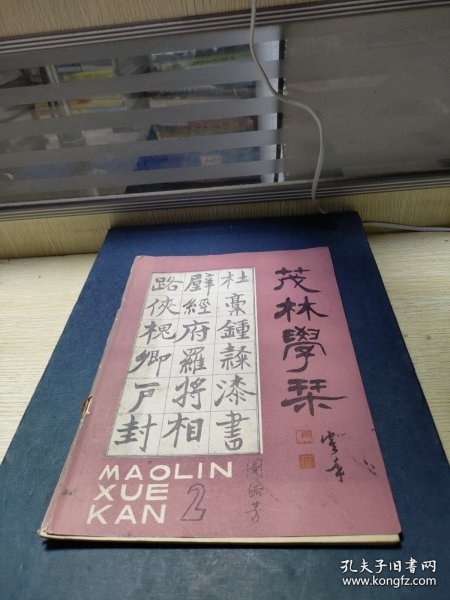 茂林學栞
杜稾鍾隸漆書
壁經府羅將相
路俠槐卿戶封
MAOLIN
XUE
KAN
2
孔夫子旧书网
www.kongfz.com